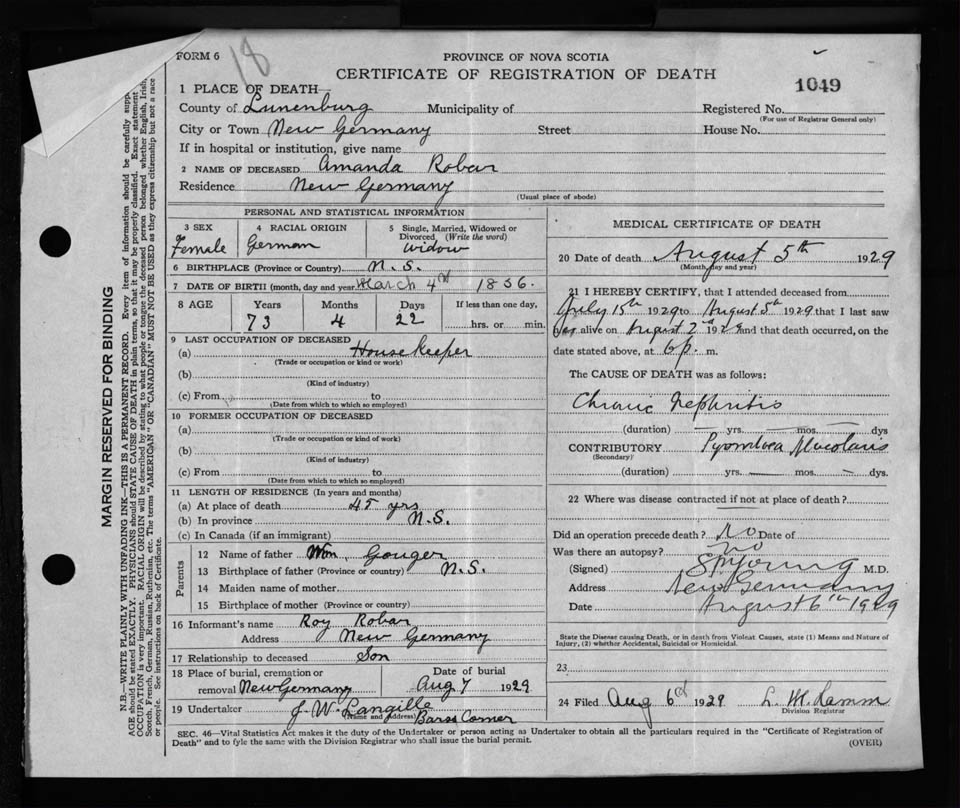 18
FORM 6
PROVINCE OF NOVA SCOTIA
CERTIFICATE OF REGISTRATION OF DEATH
1049
1 PLACE OF DEATH—
County of Lunenburg Municipality of Registered No.
(For use of Registrar General only)
City or Town New Germany Street House No.
If in hospital or institution, give name
2 NAME OF DECEASED Amanda Robar
Residence New Germany
(Usual place of abode)
PERSONAL AND STATISTICAL INFORMATION
3 SEX 4 RACIAL ORIGIN 5 Single, Married, Widowed or Divorced (Write the word)
Female German Widow
6 BIRTHPLACE (Province or Country) N.S.
7 DATE OF BIRTH (month, day and year) March 4th 1856.
8 AGE Years Months Days If less than one day,
73 4 22 hrs. or min.
9 LAST OCCUPATION OF DECEASED
(a) House Keeper
(Trade or occupation or kind or work)
(b)
(Kind of industry)
(c) From to
(Date from which to which so employed)
10 FORMER OCCUPATION OF DECEASED
(a)
(Trade or occupation or kind of work)
(b)
(Kind of industry)
(c) From to
(Date from which to which so employed)
11 LENGTH OF RESIDENCE (In years and months)
(a) At place of death 45 yrs
(b) In province N.S.
(c) In Canada (if an immigrant)
Parents
12 Name of father Wm. Gouger
13 Birthplace of father (Province or country) N.S.
14 Maiden name of mother
15 Birthplace of mother (Province or country)
16 Informant's name Roy Robar
Address New Germany
17 Relationship to deceased Son
18 Place of burial, cremation or removal New Germany
Date of burial Aug 7 1929
19 Undertaker J. W. Langille
(Name and address) Barss Corner
MEDICAL CERTIFICATE OF DEATH
20 Date of death August 5th 1929
(Month, day and year)
21 I HEREBY CERTIFY, that I attended deceased from
July 15th 1929 to August 5th 1929 that I last saw
her alive on August 2nd 1929 and that death occurred, on the
date stated above, at 6 p. m.
The CAUSE OF DEATH was as follows:
Chronic Nephritis
(duration) — yrs. — mos. — dys
CONTRIBUTORY
(Secondary)
(duration) yrs. — mos. — dys.
22 Where was disease contracted if not at place of death?
Did an operation precede death? No Date of
Was there an autopsy? No
(Signed) M.D.
Address New Germany
Date August 6th 1929
State the Disease causing Death, or in death from Violent Causes, state (1) Means and Nature of
Injury, (2) whether Accidental, Suicidal or Homicidal.
23
24 Filed Aug 6th 1929
Division Registrar
SEC. 46—Vital Statistics Act makes it the duty of the Undertaker or person acting as Undertaker to obtain all the particulars required in the "Certificate of Registration of
Death" and to fyle the same with the Division Registrar who shall issue the burial permit.
(OVER)
MARGIN RESERVED FOR BINDING
N.B.—WRITE PLAINLY WITH UNFADING INK—THIS IS A PERMANENT RECORD. Every item of information should be carefully supp
AGE should be stated EXACTLY. PHYSICIANS should STATE CAUSE OF DEATH in plain terms, so that it may be properly classified. Exact statement
OCCUPATION is very important. RACIAL ORIGIN will be described by stating to what people or tongue the deceased person belonged whether English, Irish,
Scotch, French, German, Russian, Ruthenian, etc. The terms "AMERICAN" OR "CANADIAN" MUST NOT BE USED as they express citizenship but not a race
or people. See instructions on back of Certificate.